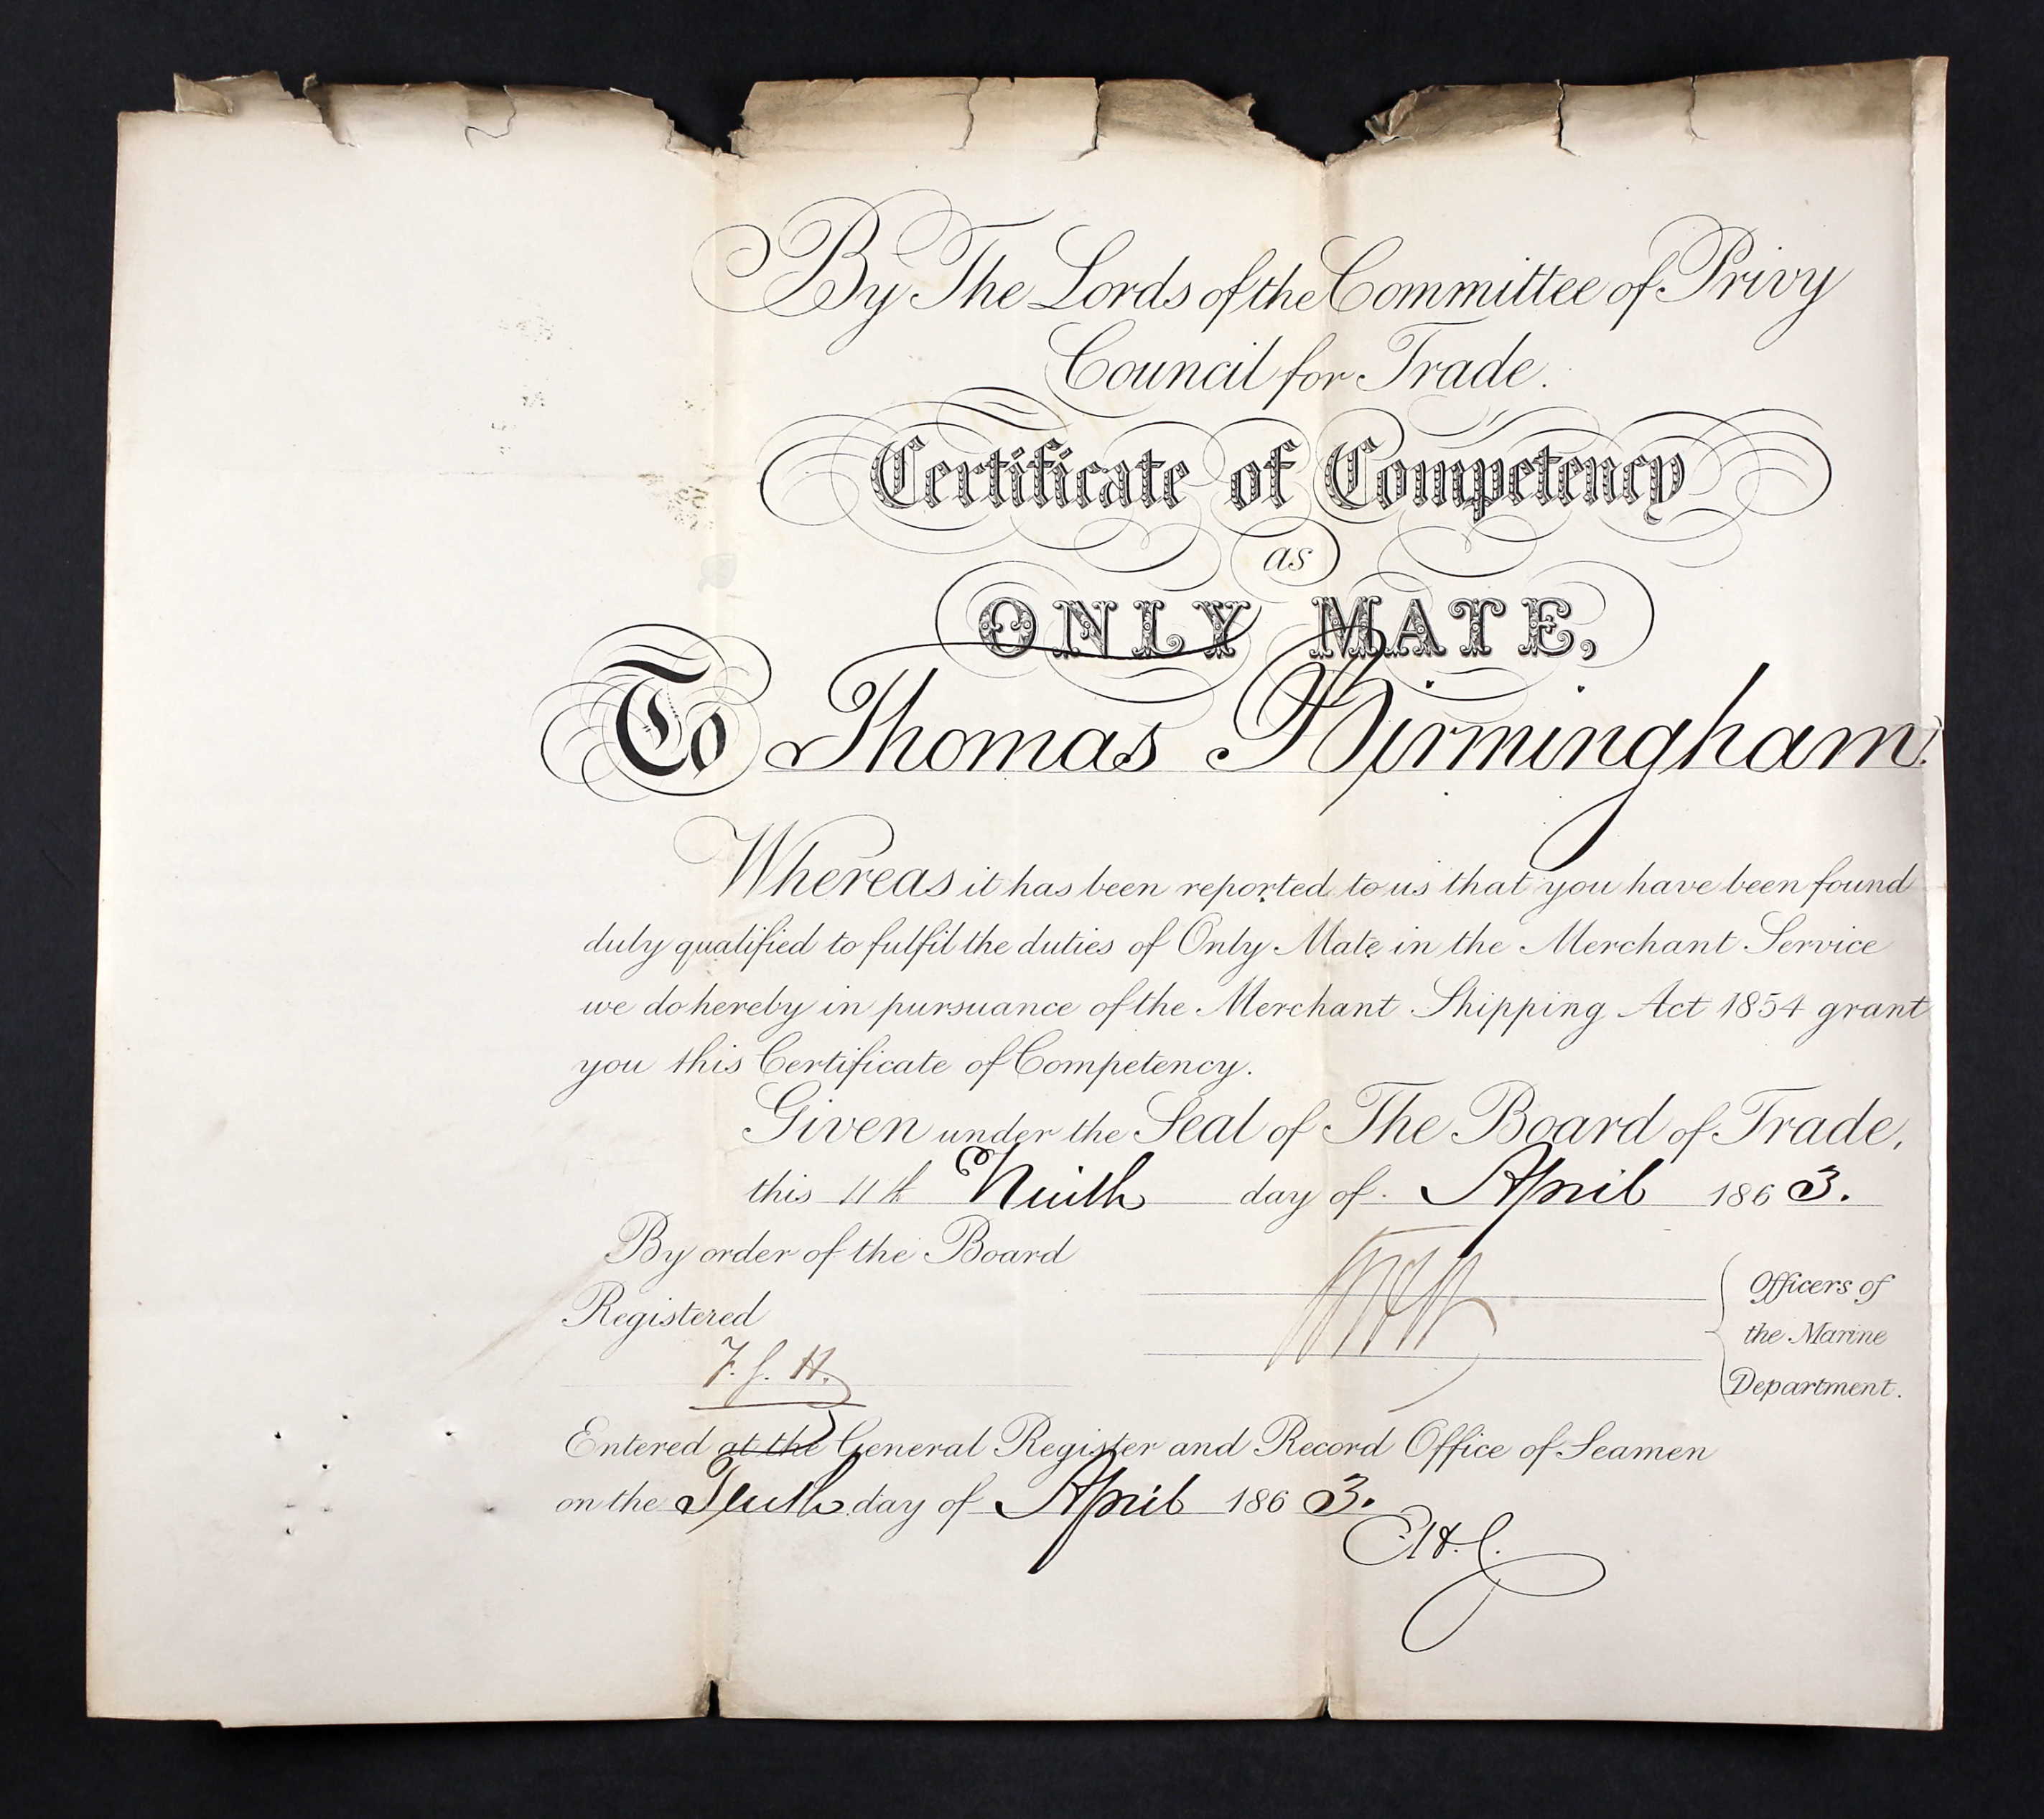 By The Lords of the Committee of Privy
Council for Trade.
Certificate of Competency
as
ONLY MATE,
To Thomas Birmingham.
Whereas it has been reported to us that you have been found
duly qualified to fulfil the duties of Only Mate in the Merchant Service
we do hereby in pursuance of the Merchant Shipping Act 1854 grant
you this Certificate of Competency.
Given under the Seal of The Board of Trade,
this Ninth day of April 1863.
By order of the Board
Officers of
the Marine
Department.
Registered
F. J. H.
Entered at the General Register and Record Office of Seamen
on the Tenth day of April 1863.